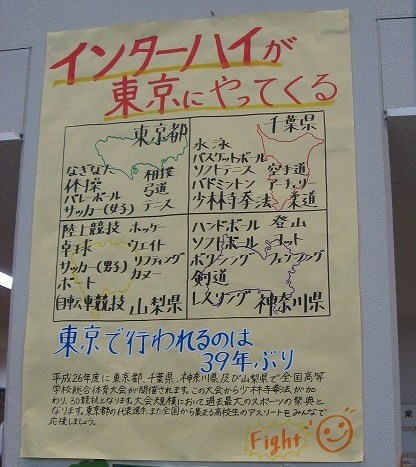 インターハイが
東京にやってくる
東京都
なぎなた 相撲
体操 弓道
バレーボール テニス
サッカー(女子)
千葉県
水泳
バスケットボール
ソフトテニス 空手道
バドミントン アーチェリー
少林寺拳法 柔道
陸上競技 ホッケー
卓球 ウェイト
サッカー(男子) リフティング
ボート カヌー
自転車競技 山梨県
ハンドボール 登山
ソフトボール ヨット
ボクシング フェンシング
剣道
レスリング 神奈川県
東京で行われるのは
39年ぶり
平成26年度に東京都、千葉県、神奈川県及び山梨県で全国高等
学校総合体育大会が開催されます。この大会から少林寺拳法が加
わり、30競技となります。大会規模において過去最大のスポーツの祭典と
なります。東京都の代表選手、また全国から集まる高校生のアスリートをみんなで
応援しましょう。
Fight